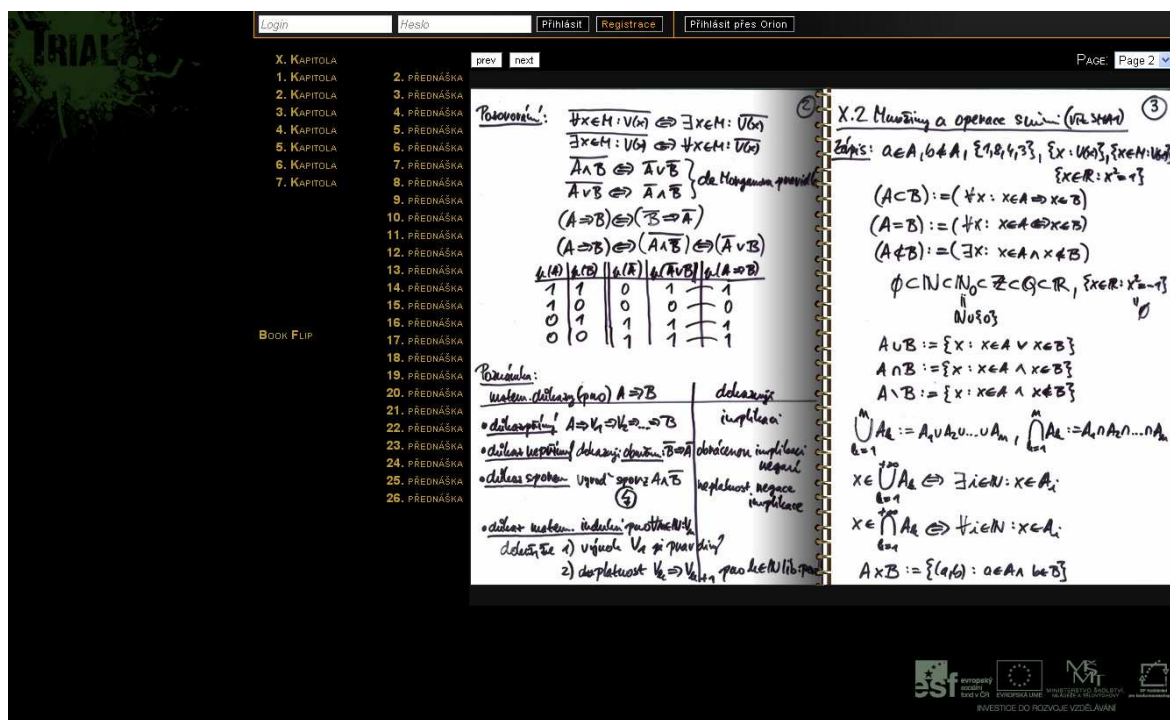 TRIAL
Login Heslo Přihlásit Registrace Přihlásit přes Orion
X. Kapitola
1. Kapitola
2. Kapitola
3. Kapitola
4. Kapitola
5. Kapitola
6. Kapitola
7. Kapitola
Book Flip
2. přednáška
3. přednáška
4. přednáška
5. přednáška
6. přednáška
7. přednáška
8. přednáška
9. přednáška
10. přednáška
11. přednáška
12. přednáška
13. přednáška
14. přednáška
15. přednáška
16. přednáška
17. přednáška
18. přednáška
19. přednáška
20. přednáška
21. přednáška
22. přednáška
23. přednáška
24. přednáška
25. přednáška
26. přednáška
prev next Page: Page 2
2
Pozorování: \overline{∀x∈M: V(x)} ⇔ ∃x∈M: \overline{V(x)}
\overline{∃x∈M: V(x)} ⇔ ∀x∈M: \overline{V(x)}
\overline{A∧B} ⇔ \overline{A}∨\overline{B}
\overline{A∨B} ⇔ \overline{A}∧\overline{B} } de Morganova
(A⇒B)⇔(\overline{B}⇒\overline{A})
(A⇒B)⇔(\overline{A∧\overline{B}})⇔(\overline{A}∨B)
μ(A) μ(B) μ(\overline{A}) μ(\overline{A}∨B) μ(A⇒B)
1 1 0 1 1
1 0 0 0 0
0 1 1 1 1
0 0 1 1 1
Poznámka:
matem. důkazy (pro) A⇒B dokazuji
• důkaz přímý A⇒V₁⇒V₂⇒...⇒B implikaci
• důkaz nepřímý dokazuji obměnu: \overline{B}⇒\overline{A} obrácenou implikaci negací
• důkaz sporem spor z A∧\overline{B} neplatnost negace implikace
• důkaz matem. indukcí
1) výrok V₁ je pravdivý
2)
3
X.2 Množiny a operace s nimi (viz SMA1)
Zápis: a∈A, b∉A, {1,8,4,3}, {x: V(x)}, {x∈M: V(x)}
{x∈ℝ: x²=1}
(A⊂B):=(∀x: x∈A⇒x∈B)
(A=B):=(∀x: x∈A⇔x∈B)
(A⊄B):=(∃x: x∈A∧x∉B)
∅⊂ℕ⊂ℕ₀⊂ℤ⊂ℚ⊂ℝ, {x∈ℝ: x²=-1}
ℕ∪{0} ∅
A∪B:={x: x∈A ∨ x∈B}
A∩B:={x: x∈A ∧ x∈B}
A∖B:={x: x∈A ∧ x∉B}
⋃_{k=1}^{m} A_k := A₁∪A₂∪...∪A_m, ⋂_{k=1}^{m} A_k := A₁∩A₂∩...∩A_m
x∈⋃_{k=1}^{+∞} A_k ⇔ ∃i∈ℕ: x∈A_i
x∈⋂_{k=1}^{+∞} A_k ⇔ ∀i∈ℕ: x∈A_i
A×B:={(a,b): a∈A∧ b∈B}
esf evropský sociální fond v ČR
EVROPSKÁ UNIE
MINISTERSTVO ŠKOLSTVÍ, MLÁDEŽE A TĚLOVÝCHOVY
INVESTICE DO ROZVOJE VZDĚLÁVÁNÍ